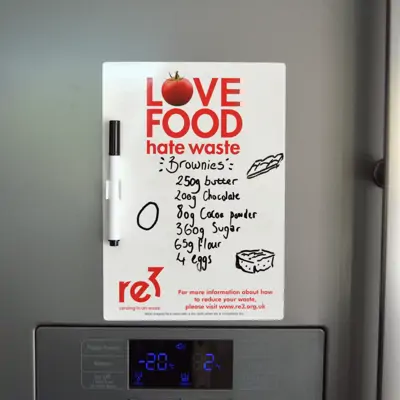 LOVE
FOOD
hate waste
Brownies:
250g butter
200g Chocolate
80g Cocoa powder
360g Sugar
65g Flour
4 eggs
re3
For more information about how
to reduce your waste,
please visit www.re3.org.uk
-20
2